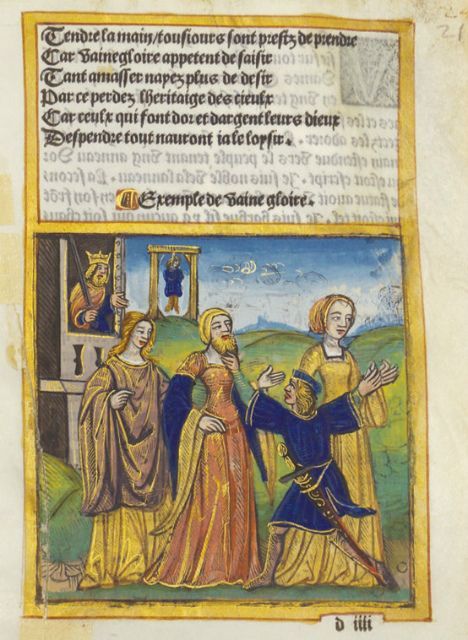 Tendre la main/tousiours sont prestz de prendre
Car vaine gloire appetent de saisir
Tant amasser nayez plus de desir
Par ce perdez lheritaige des cieulx
Car ceulx qui font dor et dargent leurs dieux
Despendre tout nauront ia le loysir.
Exemple de vaine gloire.
d iiii